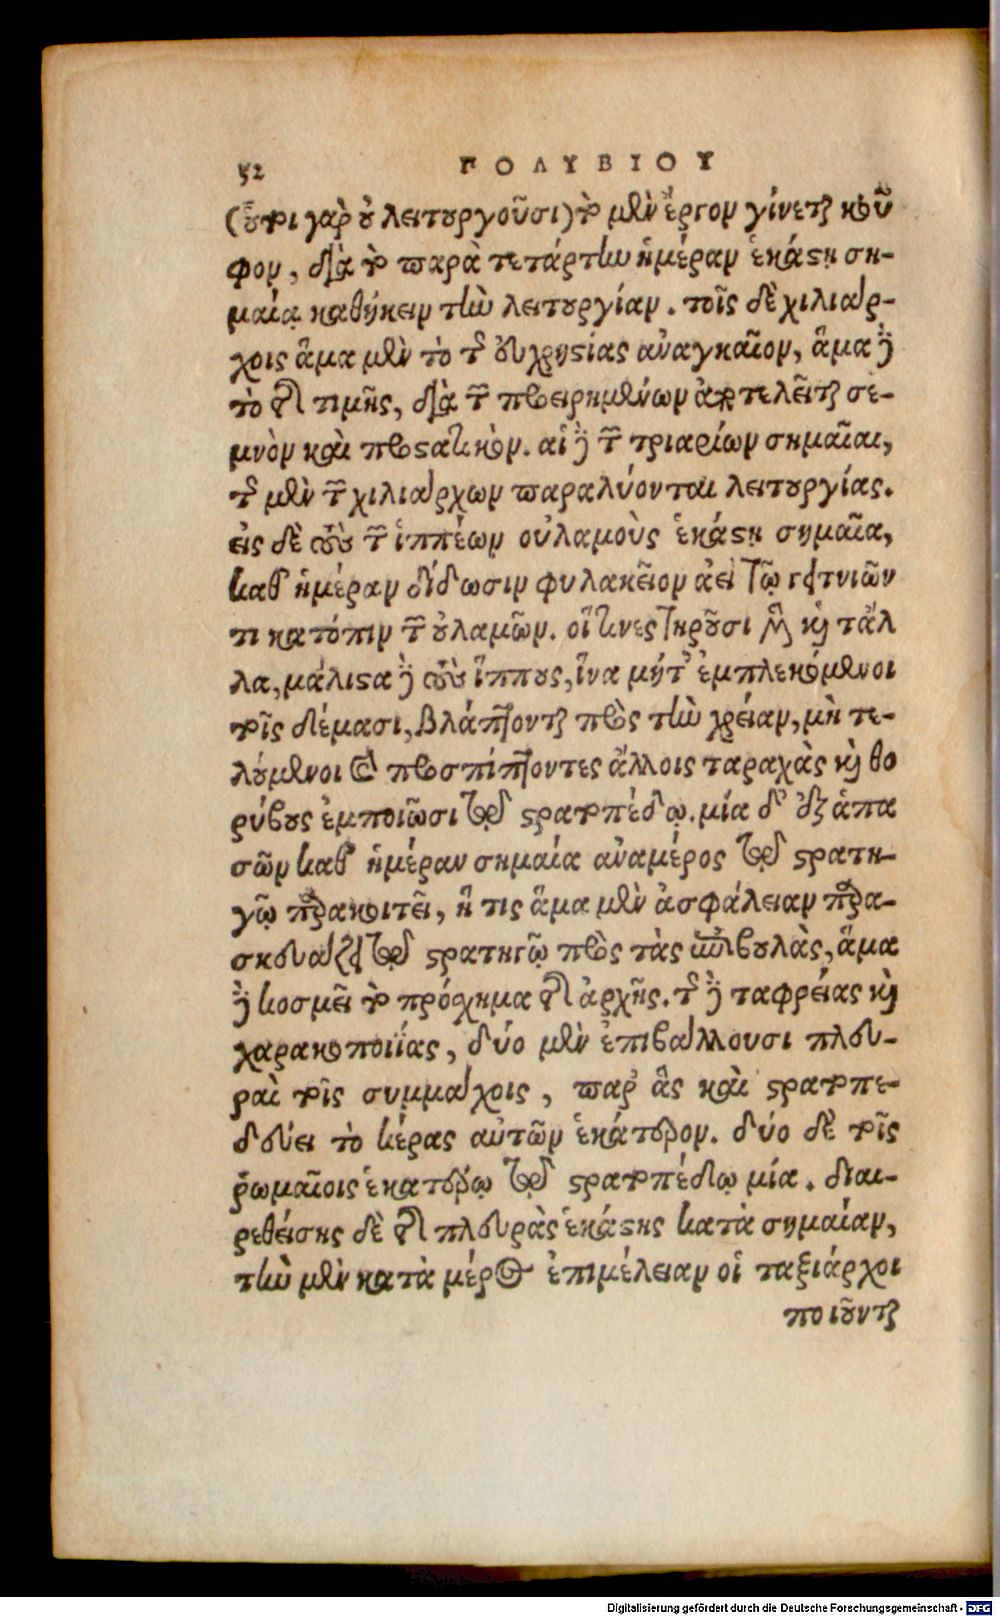 52 ΠΟΛΥΒΙΟΥ
(οὗτοι γὰρ οὐ λειτουργοῦσι) τὸ μὲν ἔργον γίνεται κοῦ
φον, διὰ τὸ παρὰ τετάρτην ἡμέραν ἑκάστῃ ση-
μαίᾳ καθήκειν τὴν λειτουργίαν. τοῖς δὲ χιλιάρ-
χοις ἅμα μὲν τὸ τῆς εὐχρηστίας ἀναγκαῖον, ἅμα δὲ
τὸ τῆς τιμῆς, διὰ τῶν προειρημένων ἀποτελεῖται σε-
μνὸν καὶ προστατικὸν. αἱ δὲ τῶν τριαρίων σημαῖαι,
τῆς μὲν τῶν χιλιάρχων παραλύονται λειτουργίας.
εἰς δὲ τοὺς τῶν ἱππέων οὐλαμοὺς ἑκάστη σημαῖα,
καθ' ἡμέραν δίδωσιν φυλακεῖον ἀεὶ τῷ γειτνιῶν
τι κατόπιν τῶν οὐλαμῶν. οἵτινες τηροῦσι μὲν καὶ τἄλ
λα, μάλιστα δὲ τοὺς ἵππους, ἵνα μήτ' ἐμπλεκόμενοι
τοῖς δέμασι, βλάπτονται πρὸς τὴν χρείαν, μὴ τε-
λύμενοι καὶ προσπίπτοντες ἄλλοις ταραχὰς καὶ θο
ρύβους ἐμποιῶσι τῷ στρατοπέδῳ. μία δ' ἐξ ἁπα
σῶν καθ' ἡμέραν σημαία ἀναμέρος τῷ στρατη-
γῷ παρακοιτεῖ, ἥ τις ἅμα μὲν ἀσφάλειαν παρα-
σκευάζει τῷ στρατηγῷ πρὸς τὰς ἐπιβουλὰς, ἅμα
δὲ κοσμεῖ τὸ πρόσχημα τῆς ἀρχῆς. τῆς δὲ ταφρείας καὶ
χαρακοποιΐας, δύο μὲν ἐπιβάλλουσι πλευ-
ραὶ τοῖς συμμάχοις, παρ' ἃς καὶ στρατοπε-
δεύει τὸ κέρας αὐτῶν ἑκάτερον. δύο δὲ τοῖς
ῥωμαῖοις ἑκατέρῳ τῷ στρατοπέδῳ μία. διαι-
ρεθείσης δὲ τῆς πλευρὰς ἑκάστης κατὰ σημαίαν,
τὴν μὲν κατὰ μέρος ἐπιμέλειαν οἱ ταξιάρχοι
ποιοῦνται
Digitalisierung gefördert durch die Deutsche Forschungsgemeinschaft - DFG